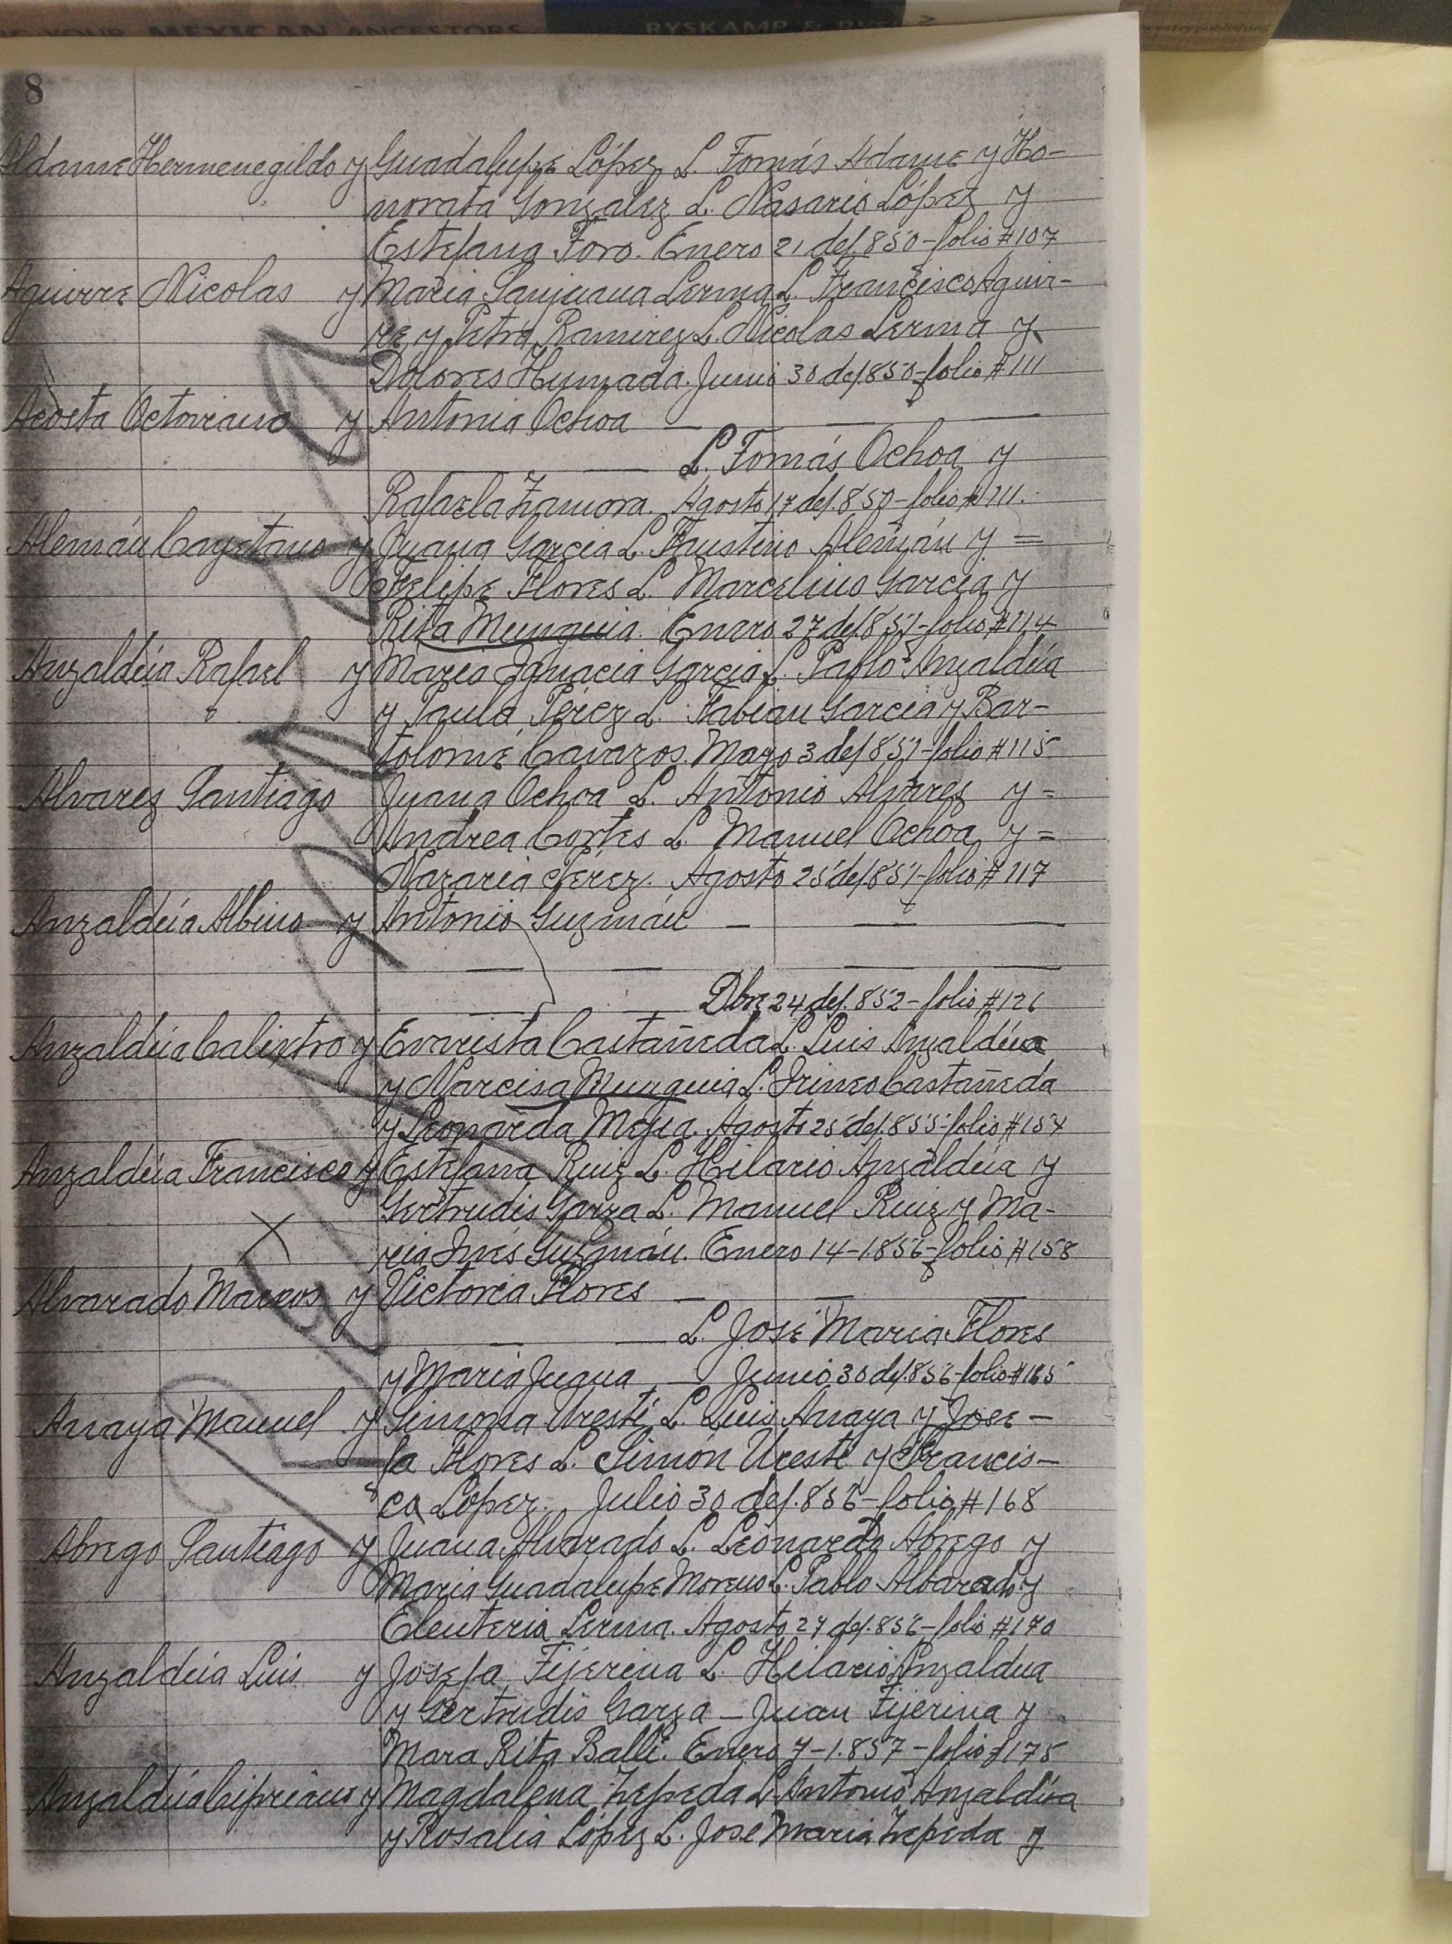 MEXICAN ANCESTORS
RYSKAMP &
ancestrypublishing
8
Aldame Hermenegildo y Guadalupe López L. Tomás Adame y Ho-
norata Gonzalez L. Nasario López y
Estefana Toro. Enero 21 del.850-folio #107
Aguirre Nicolas y Maria Sanjuana Lerma L. Francisco Aguir-
re y Petra Ramirez L. Nicolas Lerma y
Dolores Humada. Junio 30 del.850-folio #111
Acosta Octaviano y Antonia Ochoa — — —
— — L. Tomás Ochoa y
Rafaela Zamora. Agosto 17 del.850-folio #111.
Alemán Cayetano y Juana Garcia L. Faustino Alemán y =
Felipe Flores L. Marcelino Garcia y
Rita Munguia. Enero 27 del.851-folio #114
Anzaldúa Rafael y Maria Ignacia Garcia L. Pablo Anzaldúa
y Paula Pérez L. Fabian Garcia y Bar-
tolomé Cavazos. Mayo 3 del.851-folio #115
Alvarez Santiago Juana Ochoa L. Antonio Alvarez y =
Andrea Cortes L. Manuel Ochoa y =
Nazaria Pérez. Agosto 25 del.851-folio #117
Anzaldúa Albino y Antonio Guzmán — — —
— — — —
— — Dbre 24 del.852-folio #126
Anzaldúa Calixtro y Evarista Castañeda L. Luis Anzaldúa
y Narcisa Munguia L. Irineo Castañeda
y Leonarda Mejia. Agosto 25 del.855-folio #154
Anzaldúa Francisco y Estefana Ruiz L. Hilario Anzaldúa y
Gertrudis Garza L. Manuel Ruiz y Ma-
ria Inés Guzmán. Enero 14-1.856-folio #158
Alvarado Marcos y Victoria Flores — — —
— — L. José Maria Flores
y Maria Juana — Junio 30 del.856-folio #165
Anaya Manuel y Simona Uresti L. Luis Anaya y Jose-
fa Flores L. Simón Uresti y Francis-
ca López. Julio 30 del.856-folio #168
Abrego Santiago y Juana Alvarado L. Leonardo Abrego y
Maria Guadalupe Moreno L. Pablo Albarado y
Eleuteria Lerma. Agosto 27 del.856-folio #170
Anzaldúa Luis y Josefa Tijerina L. Hilario Anzaldua
y Gertrudis Garza — Juan Tijerina y
Mara Rita Balli. Enero 7-1.857-folio #175
Anzaldúa Cipriano y Magdalena Zepeda L. Antonio Anzaldúa
y Rosalia López L. Jose Maria Zepeda y